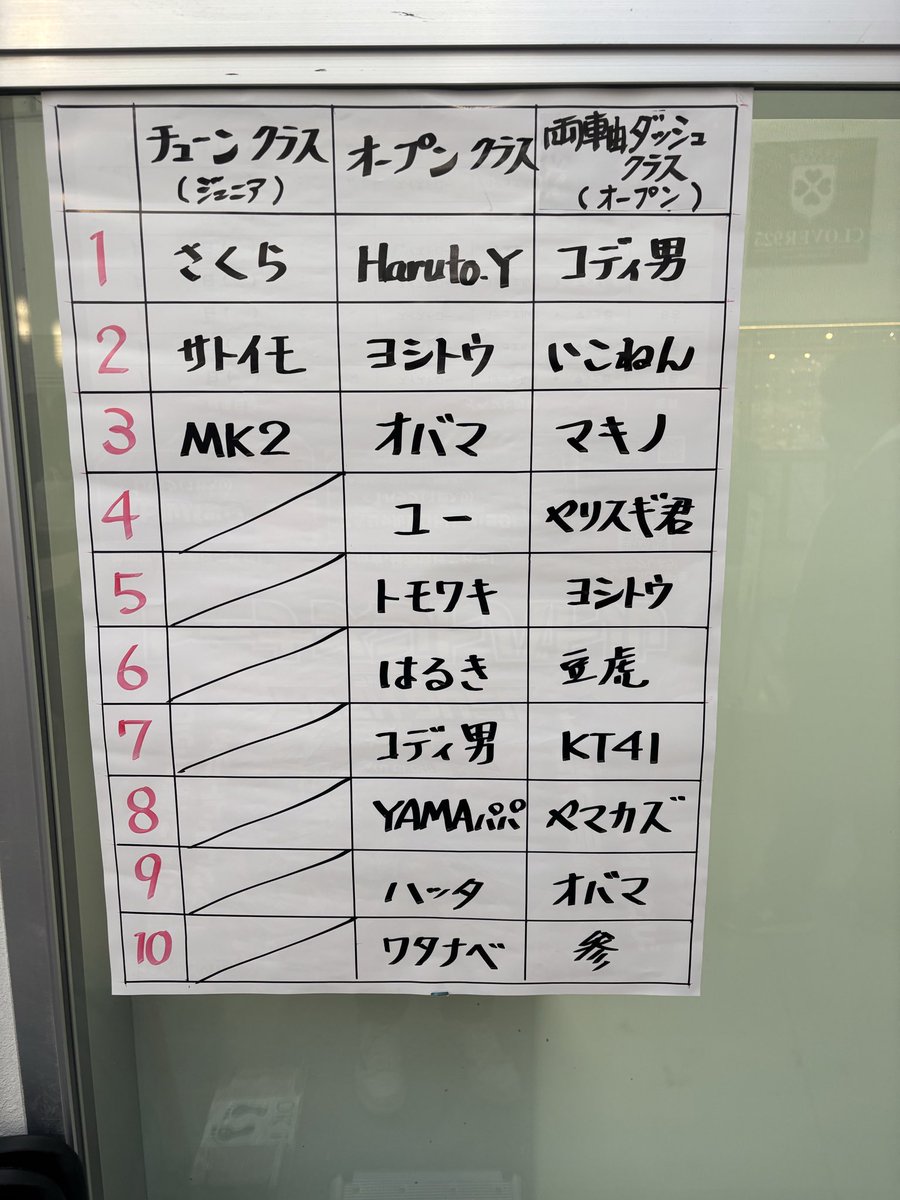 チューンクラス オープンクラス 両軸ダッシュ
(ジュニア) クラス
(オープン)
1 さくら Haruto.Y コディ男
2 サトイモ ヨシトウ いこねん
3 MK2 オバマ マキノ
4 ユー ヤリスギ君
5 トモワキ ヨシトウ
6 はるき 豆虎
7 コディ男 KT41
8 YAMAパパ ヤマカズ
9 ハッタ オバマ
10 ワタナベ 参
CLOVER925